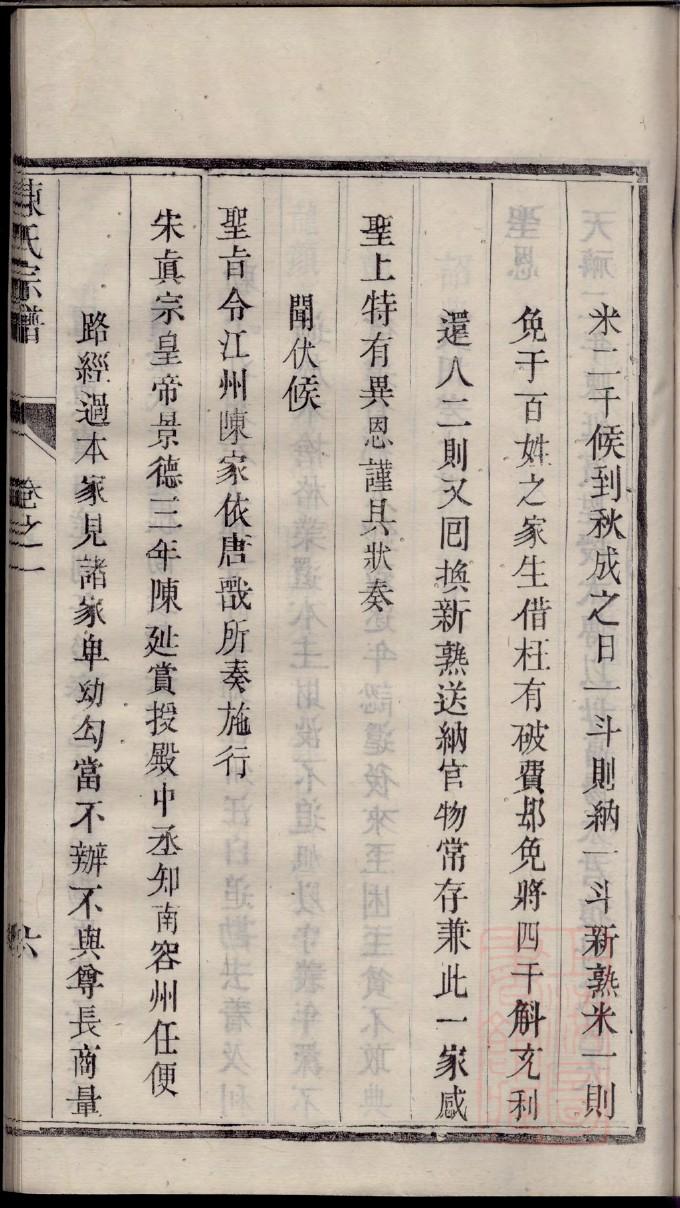 米二千候到秋成之日一斗則納一斗新熟米一則
免于百姓之家生借枉有破費却免將四千斛充利
還人二則又回換新熟送納官物常存兼此一家感
聖上特有異恩謹具狀奏
聞伏候
聖旨令江州陳家依唐戩所奏施行
宋真宗皇帝景德三年陳延賞授殿中丞知南容州任便
路經過本家見諸家卑幼勾當不辦不與尊長商量
陳氏宗譜
卷之一
六